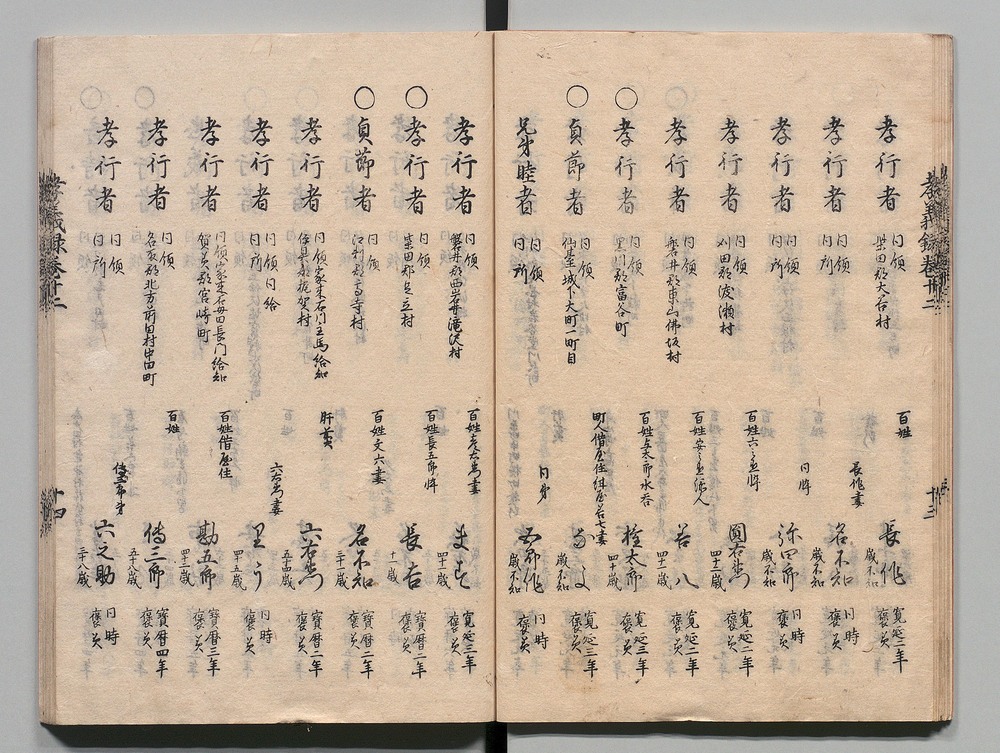 孝義録巻廿二
十三
孝行者 同領 柴田郡大谷村 百姓 長作 歳不知 寛延二年 褒美
孝行者 同領 同所 長作妻 名不知 歳不知 同時 褒美
孝行者 同領 同所 同忰 弥四郎 歳不知 同時 褒美
孝行者 同領 刈田郡渡瀬村 百姓六之丞忰 圓右衛門 四十三歳 寛延二年 褒美
孝行者 同領 磐井郡東山佛坂村 百姓 若八 四十一歳 寛延二年 褒美
○孝行者 同領 黒川郡富谷町 百姓与太郎水呑 権太郎 四十歳 寛延二年 褒美
○貞節者 同領 仙臺城下大町一町目 町人借屋住 歳不知 寛延三年 褒美
兄弟睦者 同領 同所 同弟 歳不知 同時 褒美
孝行者 同領 磐井郡西岩井滝沢村 四十一歳 寛延三年 褒美
○孝行者 同領 柴田郡足立村 百姓長五郎忰 長吉 十一歳 寶暦二年 褒美
○貞節者 同領 江刺郡高寺村 百姓文六妻 名不知 三十一歳 寶暦二年 褒美
孝行者 同領家来石川主馬給知 村 肝煎 六右衛門 五十四歳 寶暦二年 褒美
孝行者 同領同給 同所 六右衛門妻 里う 四十五歳 同時 褒美
孝行者 同領家来石母田長門給知 賀美郡宮崎町 百姓借屋住 勘五郎 四十二歳 寶暦三年 褒美
孝行者 同領 名取郡北方前田村中田町 百姓 傳三郎 五十八歳 寶暦四年 褒美
○孝行者 同領 同所 傳三郎弟 六之助 三十八歳 同時 褒美
孝義録巻廿二
十四